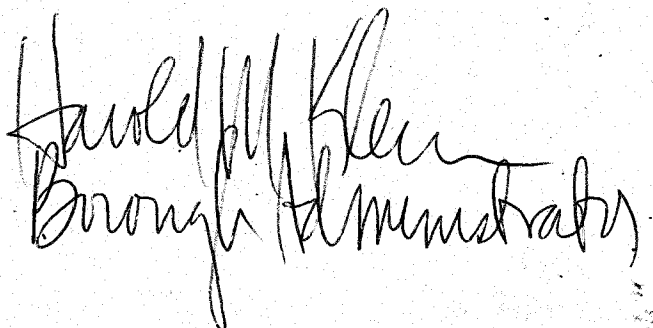 Harold M. Klein
Borough Administrator